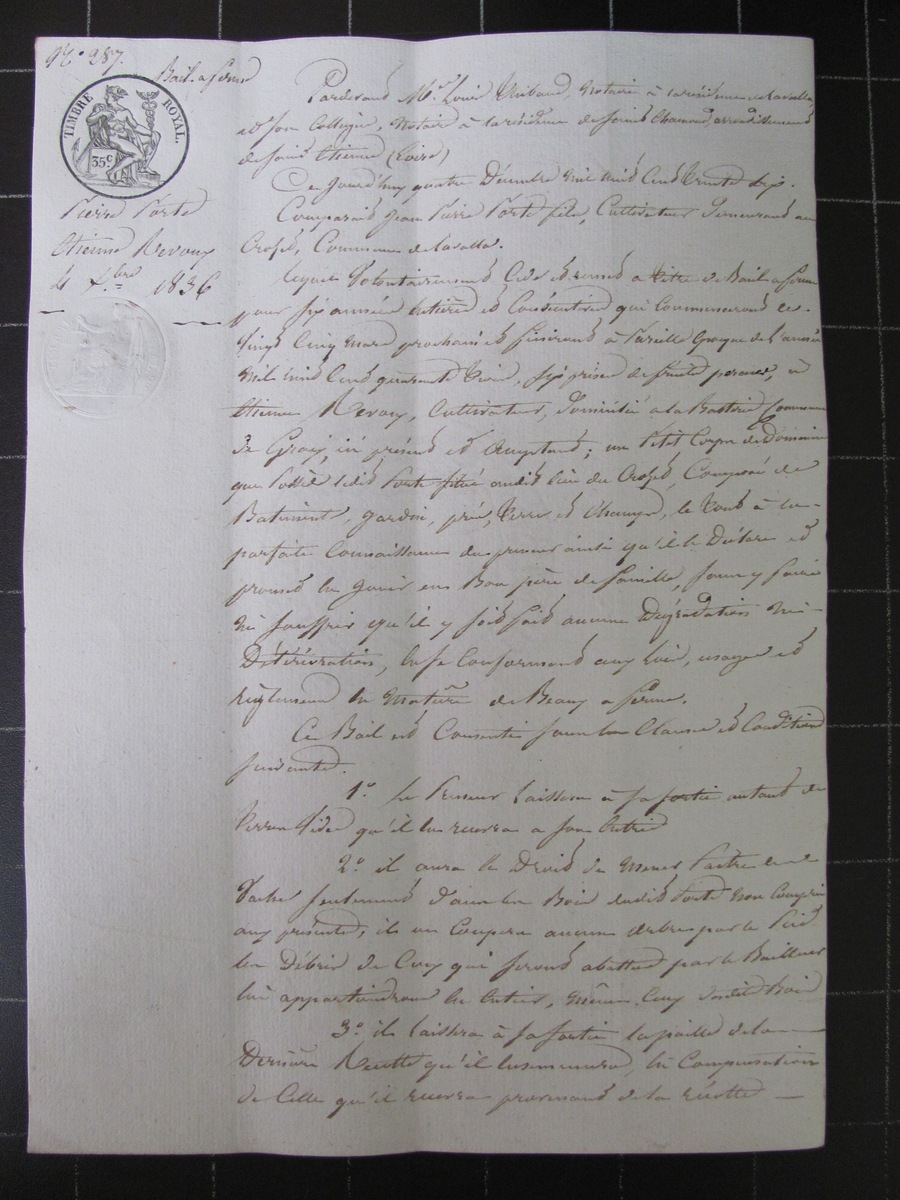 N.° 287.
Bail a ferme
TIMBRE ROYAL.
35 c
Pierre Porte
Etienne Revoux
4 Xbre 1836
Pardevant Me. Louis Thibaud, Notaire à la résidence de Lavalla,
et son Collègue, Notaire à la résidence de Saint Chamond, arrondissement
de Saint Etienne (Loire)
Ce Jourd'huy quatre Décembre mil huit Cent Trente six.
Comparait Jean Pierre Porte fils, Cultivateur Demeurant au
Crozet, Commune de Lavalla.
lequel Volontairement Cède et remet a titre de Bail a ferme
pour six années Entières et Consécutives qui Commenceront le
Vingt Cinq Mars prochain et finiront à Pareille Epoque de l'année
Mil huit Cent quarante trois, six prises de fruits perçues, à
Etienne Revoux, Cultivateur, Domicilié a la Commune
de ici présent et Acceptant; un Petit Corps de Domaine
que Possède ledit Porte situé audit lieu du Crozet, Composé de
Batiments, Jardin, prés, Terres et Champs, le tout à la
parfaite Connaissance du preneur ainsi qu'il le Déclare et
promet En Jouir en Bon père de famille, sans y faire
ni souffrir qu'il y soit fait aucune Dégradation ni
Détérioration, En se Conformant aux Lois, usages et
règlement En Matière de Beaux a ferme.
Ce Bail est Consenti sous les Clauses et Conditions
suivantes.
1.° Le Preneur laissera à sa sortie autant de
Terre qu'il En recevra a son Entrée
2.° il aura le Droit de Mener Paitre le
Vache seulement Dans les Bois dudit Porte Non Compris
aux présentes, il ne Coupera aucuns arbres par le Pied
les Débris de Ceux qui seront abattus par le Bailleur
lui appartiendront En Entier, Même Ceux desdits Bois
3.° il laissera à sa sortie la paille de la
Dernière Récolte qu'il Ensemencera, En Compensation
de Celle qu'il recevra provenant de la récolte